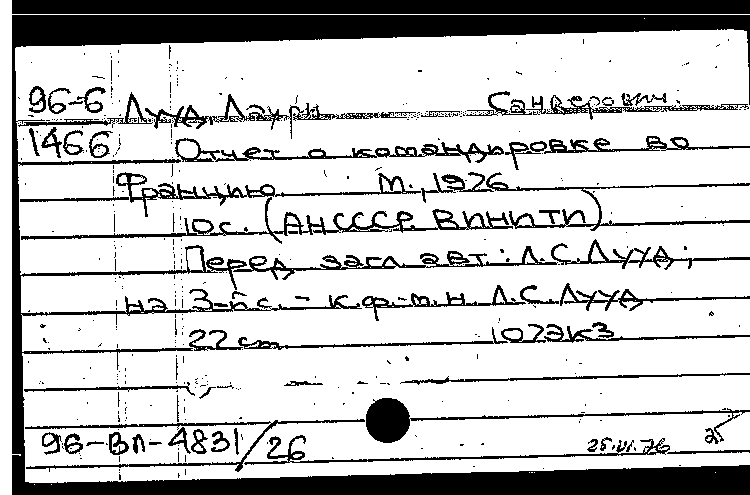 96-6 Лууд, Лаури Сандерович.
1466 Отчет о командировке во
Францию. М., 1976.
10 с. (АН СССР. ВИНИТИ).
Перед загл. авт.: Л.С. Лууд;
на 3-й с. - к.ф.-м.н. Л.С. Лууд
22 см. 107экз
96-ВЛ-4831/26 25.VI.76 25